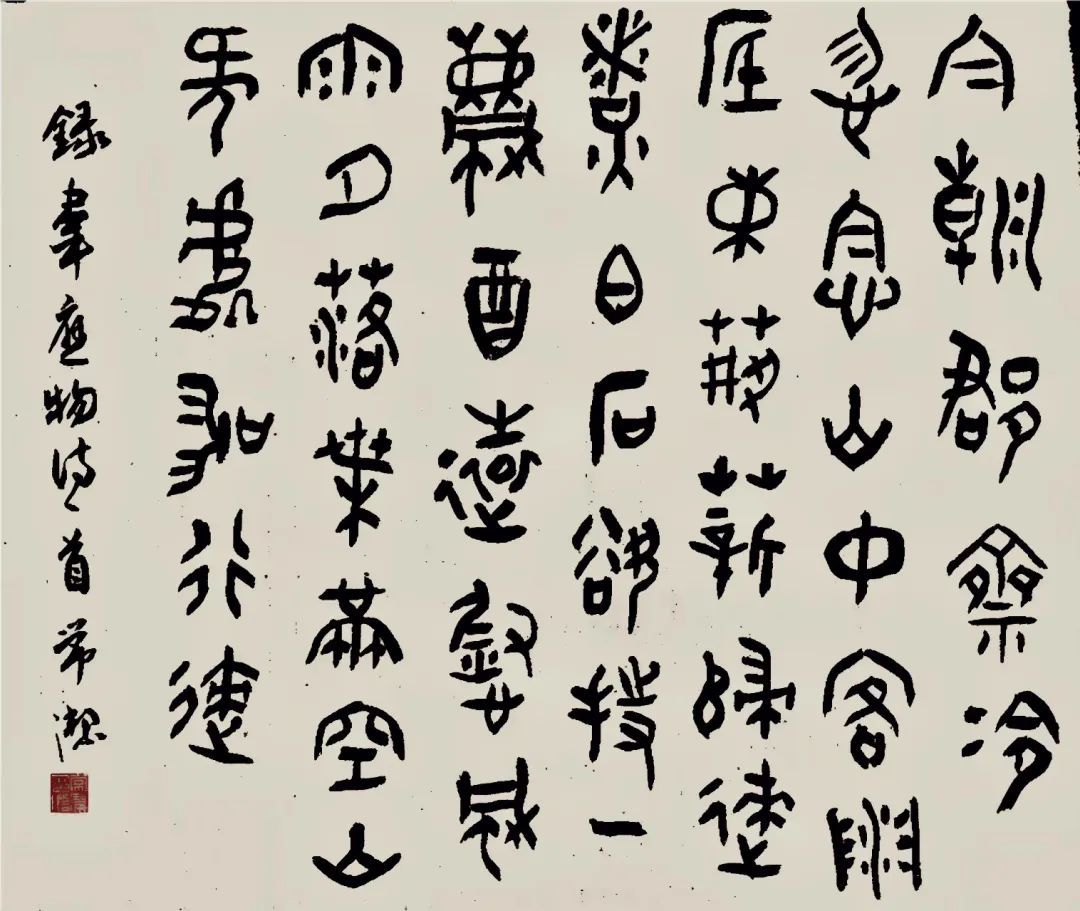 今朝郡齋冷
忽念山中客澗
底束荊薪歸來
煮白石欲持一
瓢酒遠慰風
雨夕落葉滿空山
何處尋行迹
錄韋應物詩一首 常